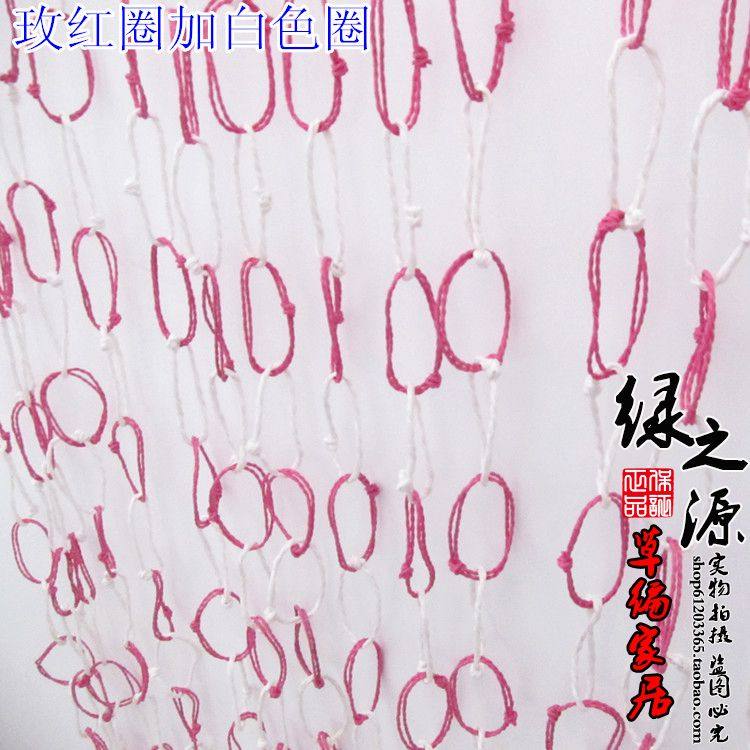 玫红圈加白色圈
绿之源
保证正品
草编家居
实物拍摄 盗图必究
shop61203365.taobao.com